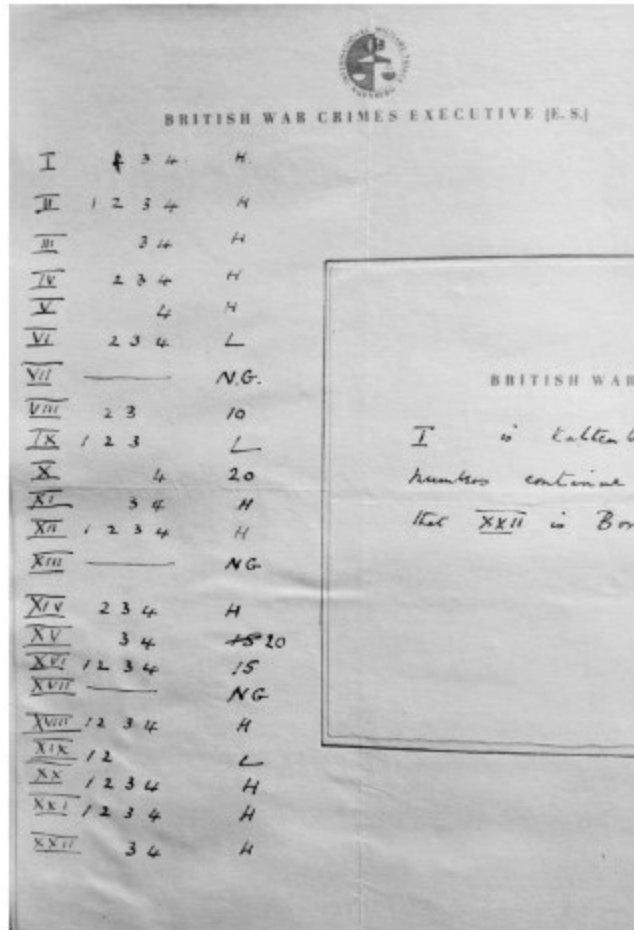 BRITISH WAR CRIMES EXECUTIVE (E.S.)
I 3 4 H.
II 1 2 3 4 H
III 3 4 H
IV 2 3 4 H
V 4 H
VI 2 3 4 L
VII N.G.
VIII 2 3 10
IX 1 2 3 L
X 4 20
XI 3 4 H
XII 1 2 3 4 H
XIII NG
XIV 2 3 4 H
XV 3 4 15 20
XVI 1 2 3 4 15
XVII NG
XVIII 1 2 3 4 H
XIX 1 2 L
XX 1 2 3 4 H
XXI 1 2 3 4 H
XXII 3 4 H
BRITISH WAR
I is Kalten
numbers continue
that XXII is Bor